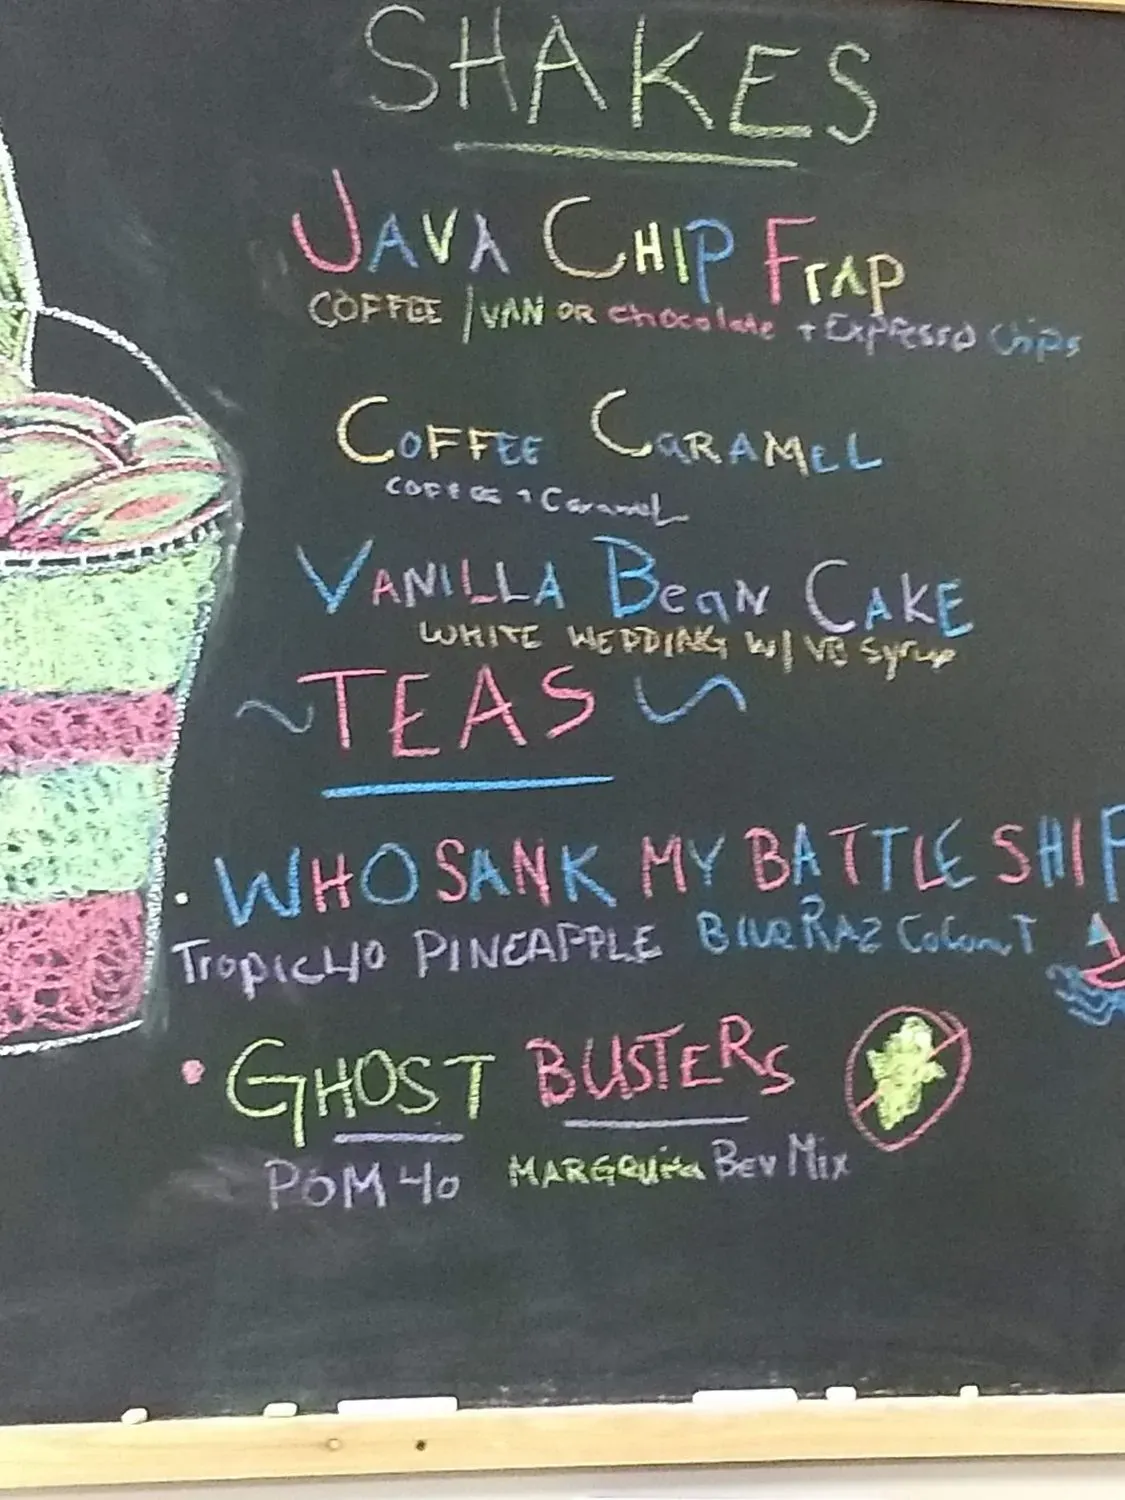 SHAKES
JAVA CHIP FrAP
COFFEE / VAN OR chocolate + Expresso chips
COFFEE CaRAMEL
COFFEE + CarameL
VANILLA BeaN CAKE
WHITE WEDDING W/ VB Syrup
~ TEAS ~
• WHO SANK MY BATTLE SHIP
Tropic 40 PINEAPPLE BlueRAZ CoConuT
• GHOST BUSTERS
POM 40 Bev Mix